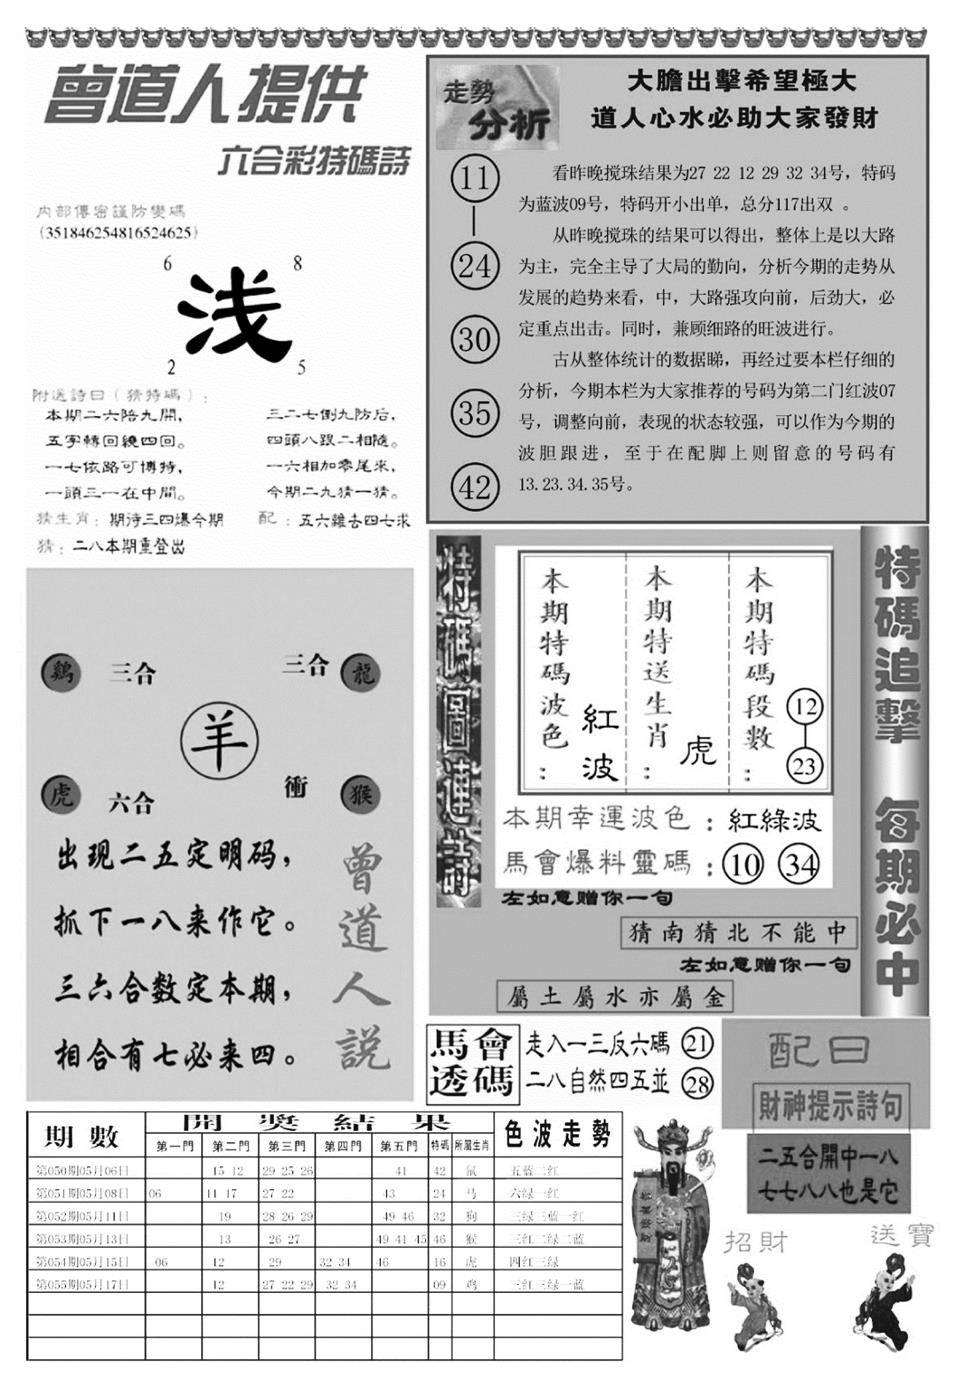 曾道人提供
六合彩特碼詩
内部傳密謹防變碼
(351846254816524625)
6 8
浅
2 5
附送詩曰(猜特碼):
本期二六陪九開, 三二七倒九防后,
五字轉回繞四回。 四頭八跟二相隨。
一七依路可博特, 一六相加零尾來,
一頭三一在中間。 今期二九猜一猜。
猜生肖:期待三四爆今期 配:五六雞去四七求
猜:二八本期重登出
走勢
分析
大膽出擊希望極大
道人心水必助大家發財
11
24
30
35
42
看昨晚搅珠结果为27 22 12 29 32 34号，特码
为蓝波09号，特码开小出单，总分117出双 。
从昨晚搅珠的结果可以得出，整体上是以大路
为主，完全主导了大局的勤向，分析今期的走势从
发展的趋势来看，中，大路强攻向前，后劲大，必
定重点出击。同时，兼顾细路的旺波进行。
古从整体统计的数据睇，再经过要本栏仔细的
分析，今期本栏为大家推荐的号码为第二门红波07
号，调整向前，表现的状态较强，可以作为今期的
波胆跟进，至于在配脚上则留意的号码有
13.23.34.35号。
鷄 三合 三合 龍
羊
虎 六合 衝 猴
出现二五定明码，
抓下一八来作它。
三六合数定本期，
相合有七必来四。
曾道人説
本期特碼波色：紅波
本期特送生肖：虎
本期特碼段數：12 23
本期幸運波色：紅綠波
馬會爆料靈碼：10 34
左如意赠你一句
猜南猜北不能中
左如意赠你一句
屬土屬水亦屬金
特碼追擊 每期必中
馬會透碼
走入一三反六碼 21
二八自然四五並 28
配曰
財神提示詩句
二五合開中一八
七七八八也是它
招財
送寶
期數 開獎結果 色波走勢
第一門 第二門 第三門 第四門 第五門 特碼 所屬生肖
第050期05月06日 15 12 29 25 26 41 42 鼠 五蓝二红
第051期05月08日 06 11 17 27 22 43 24 马 六绿一红
第052期05月11日 19 28 26 29 49 46 32 狗 三绿三蓝一红
第053期05月13日 13 26 27 49 41 45 46 猴 三红二绿二蓝
第054期05月15日 06 12 29 32 34 46 16 虎 四红三绿
第055期05月17日 12 27 22 29 32 34 09 鸡 三红三绿一蓝